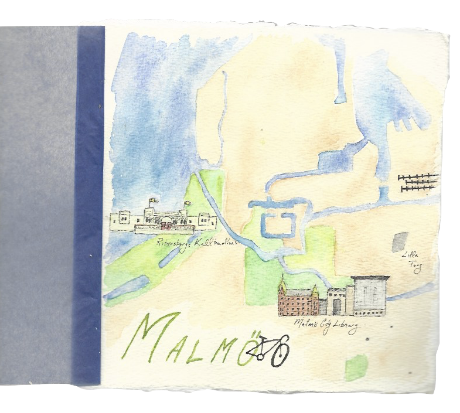 Ribersborgs Kallbadhus
Lilla
Torg
Malmö City Library
MALMÖ